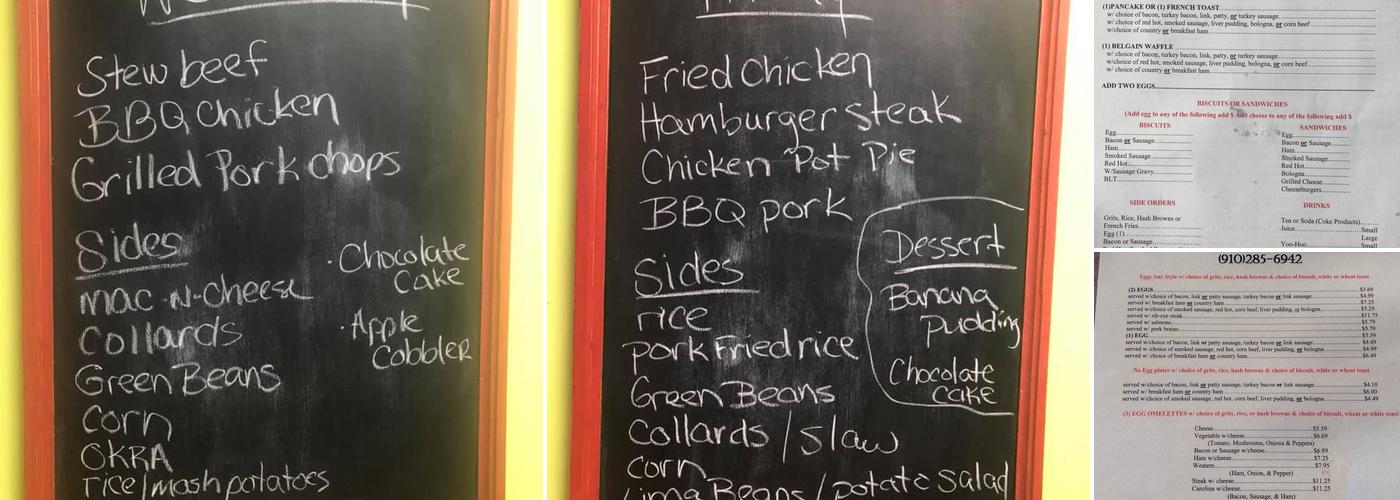 Stew beef
BBQ Chicken
Grilled Pork chops
Sides
mac-N-cheese
Collards
Green Beans
Corn
OKRA
rice/mash potatoes
· Chocolate
Cake
· Apple
Cobbler
Fried Chicken
Hamburger steak
Chicken Pot Pie
BBQ pork
Sides
rice
pork Fried rice
Green Beans
Collards / Slaw
corn
Lima Beans / potato salad
Dessert
Banana
pudding
Chocolate
cake
(1)PANCAKE OR (1) FRENCH TOAST
w/ choice of bacon, turkey bacon, link, patty, or turkey sausage
w/choice of red hot, smoked sausage, liver pudding, bologna, or corn beef
w/choice of country or breakfast ham
(1) BELGAIN WAFFLE
w/ choice of bacon, turkey bacon, link, patty, or turkey sausage
w/choice of red hot, smoked sausage, liver pudding, bologna, or corn beef
w/ choice of country or breakfast ham
ADD TWO EGGS
BISCUITS OR SANDWICHES
(Add egg to any of the following add $ Add cheese to any of the following add $
BISCUITS
Egg
Bacon or Sausage
Ham
Smoked Sausage
Red Hot
W/Sausage Gravy
BLT
SANDWICHES
Egg
Bacon or Sausage
Ham
Smoked Sausage
Red Hot
Bologna
Grilled Cheese
Cheeseburgers
SIDE ORDERS
Grits, Rice, Hash Browns or
French Fries
Egg (1)
Bacon or Sausage
DRINKS
Tea or Soda (Coke Products)
Juice Small
Large
Yoo-Hoo Small
(910)285-6942
Eggs Any Style w/ choice of grits, rice, hash browns & choice of biscuit, white or wheat toast
(2) EGGS $3.69
served w/choice of bacon, link or patty sausage, turkey bacon or link sausage $4.99
served w/ breakfast ham or country ham $7.25
served w/choice of smoked sausage, red hot, corn beef, liver pudding, or bologna $5.29
served w/ rib-eye steak $11.75
served w/ salmons $5.79
served w/ pork brains $5.79
(1) EGG $3.59
served w/choice of bacon, link or patty sausage, turkey bacon or link sausage $4.49
served w/choice of smoked sausage, red hot, corn beef, liver pudding, or bologna $4.99
served w/ choice of breakfast ham or country ham $6.49
No Egg plates w/ choice of grits, rice, hash browns & choice of biscuit, white or wheat toast
served w/choice of bacon, link or patty sausage, turkey bacon or link sausage $4.10
served w/ breakfast ham or country ham $6.00
served w/choice of smoked sausage, red hot, corn beef, liver pudding, or bologna $4.49
(3) EGG OMELETTES w/ choice of grits, rice, or hash browns & choice of biscuit, wheat or white toast
Cheese $5.59
Vegetable w/cheese $6.69
(Tomato, Mushrooms, Onions & Peppers)
Bacon or Sausage w/cheese $6.89
Ham w/cheese $7.25
Western $7.95
(Ham, Onion, & Pepper)
Steak w/ cheese $11.25
Carolina w/cheese $11.25
(Bacon, Sausage, & Ham)